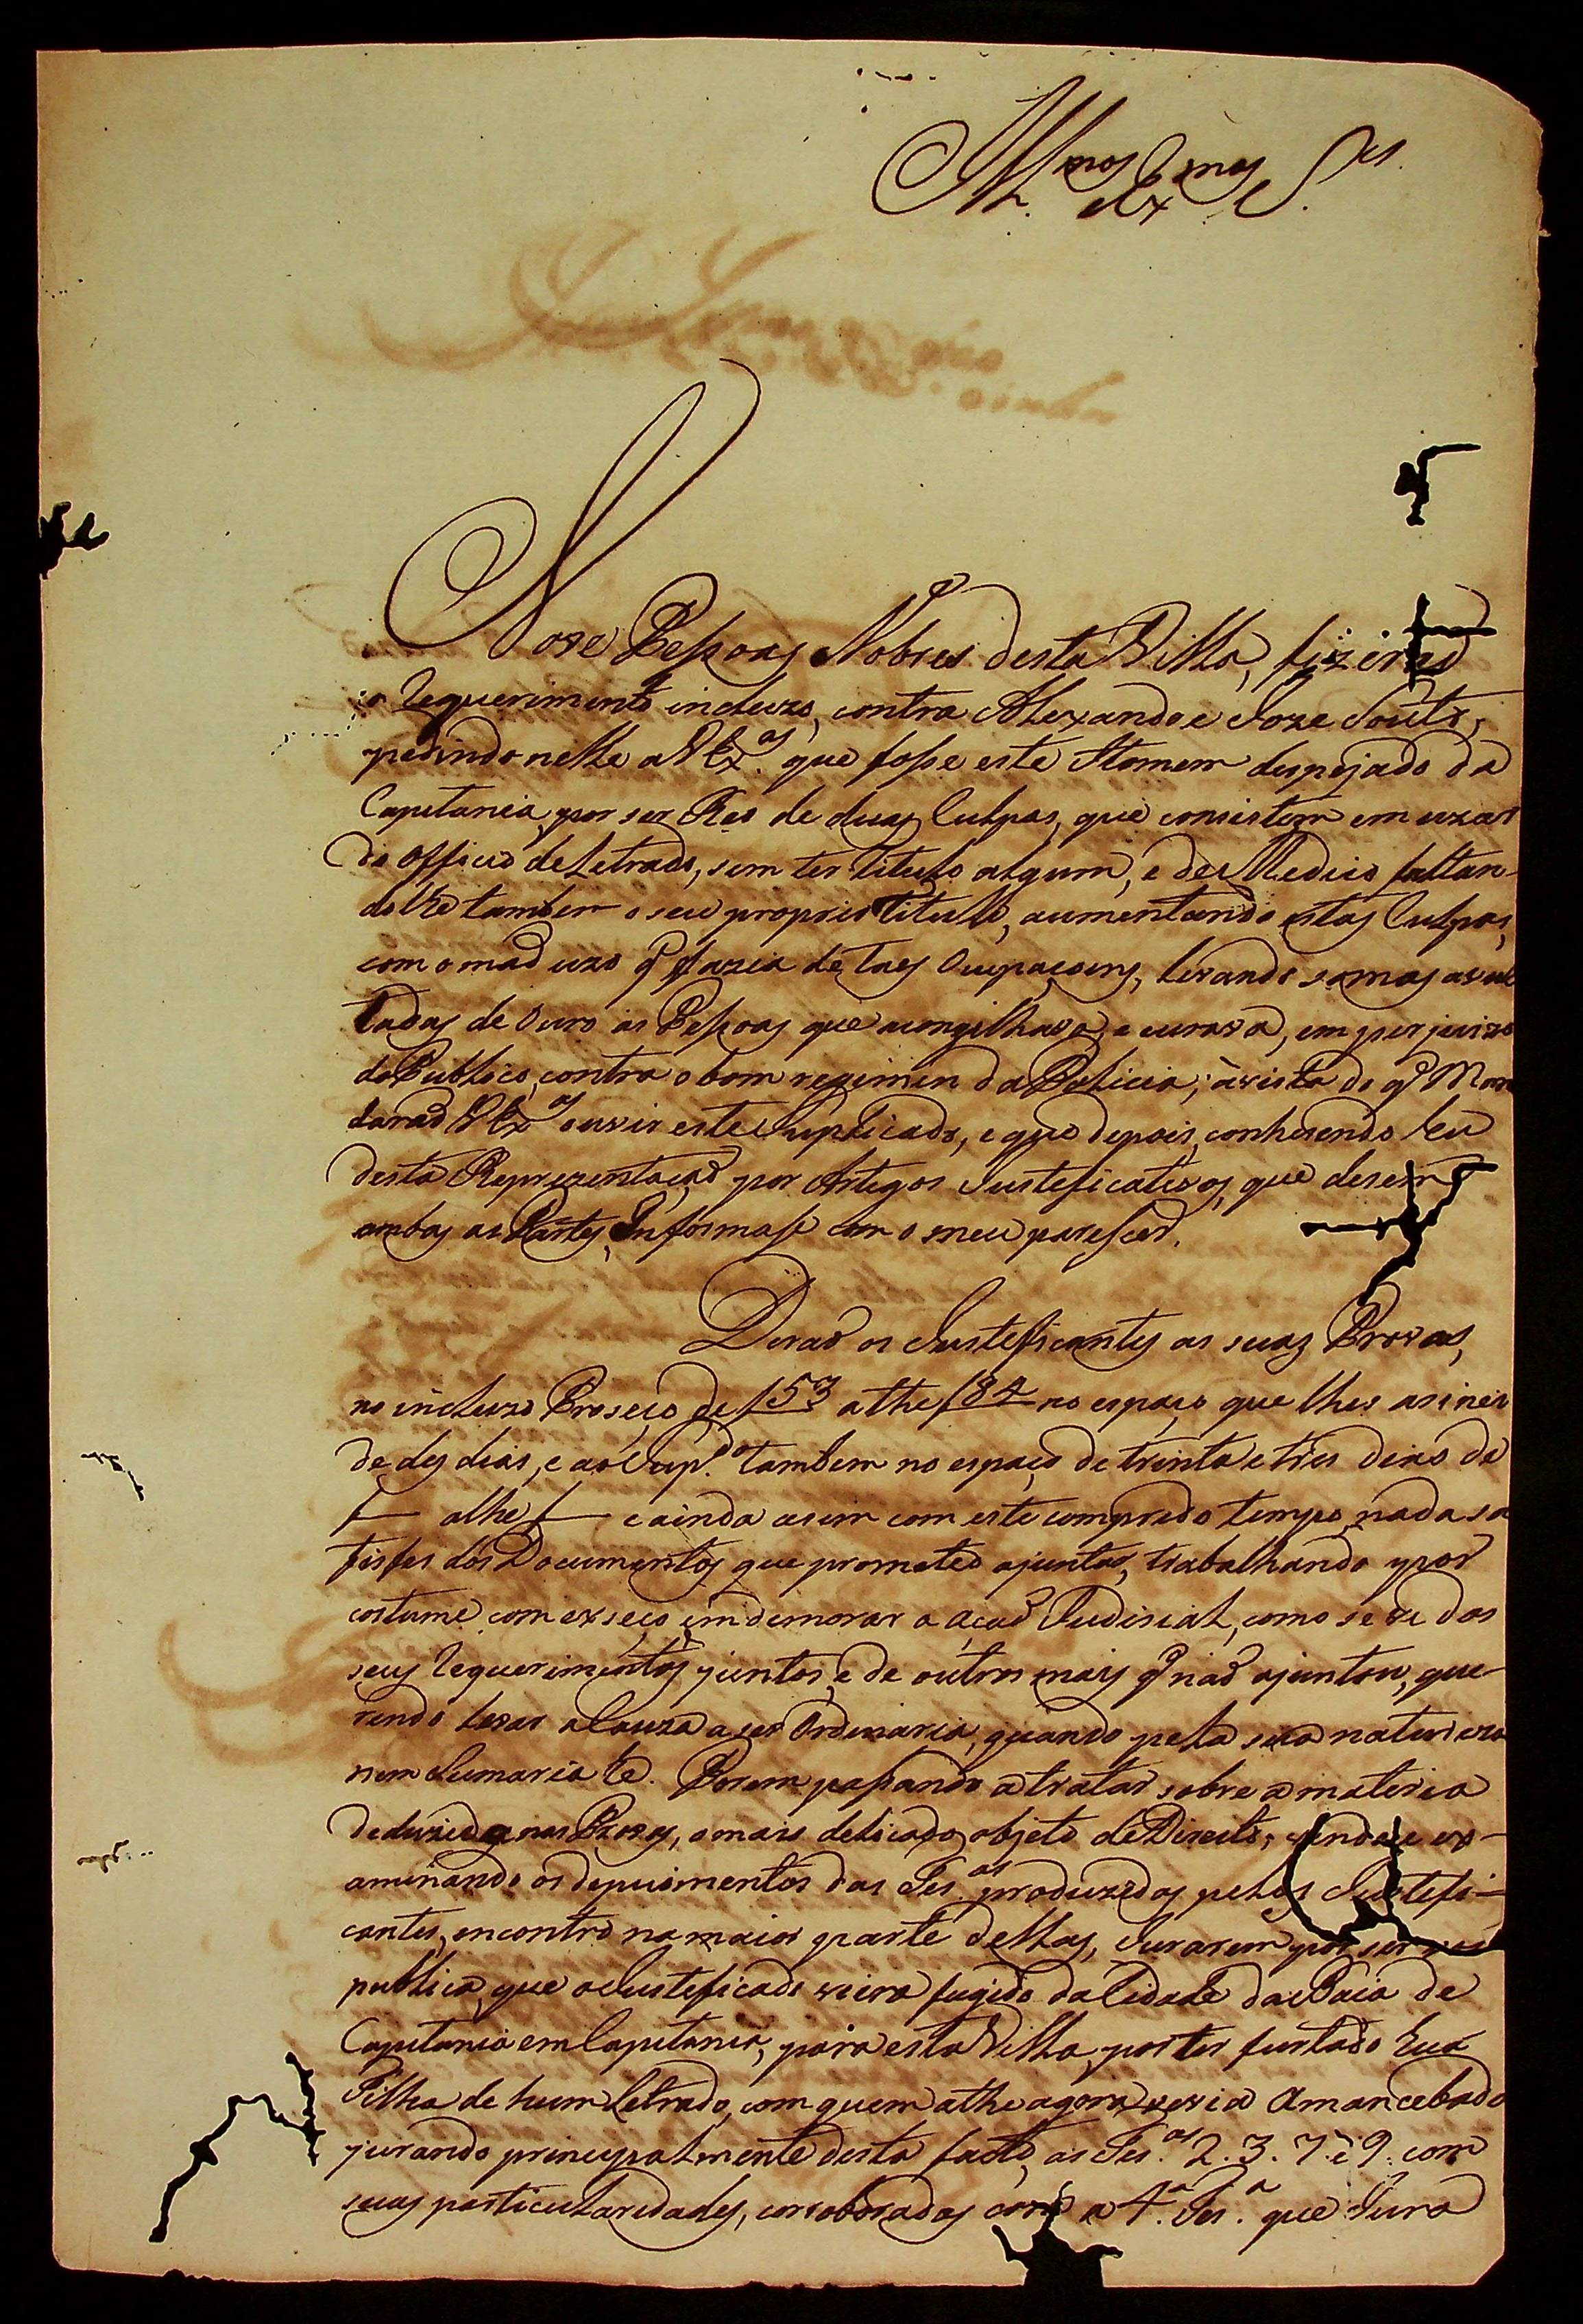 Ill.mos Ex.mos S.res
Nove Pessoas Nobres desta Villa, fizeraõ
o requerimento incluzo, contra Alexandre Joze Souto,
pedindo nelle a V Ex.as que fosse este Homem despejado da
Capitania, por ser Reo de duas Culpas, que consistem em uzar
do Officio de Letrado, sem ter titulo algum, e de Medico faltan-
dolhe tambem o seu proprio titulo, aumentando estas Culpas,
com o maõ uzo q̃ fazia de taes Ocupaçoins, levando somas avul
tadas de Ouro as Pessoas que aconcilhava, e curava, em perjuizo
do Publico, contra o bom regimen da Policia; à vista do q̃ Man
daraõ V Ex.as ouvir este Suplicado, e que depois, conhesendo Eu
desta Reprezentaçaõ por Artigos Justeficativos, que desem
ambas as Partes, Informase com o meu paresser.
Deraõ os Justeficantes as suas Provas,
no incluzo Proseço de f 53 athe f 84 no espaço que lhes asinei
de des dias, e ao Sup.o tambem no espaço de trinta e tres dias de
f— athe f— e ainda asim com este comprido tempo, nada sa
tisfes dos Documentos que prometeo ajuntar, trabalhando por
costume com exseço em demorar a açaõ Judisial, como se ve dos
seus requerimentos juntos, e de outros mais q̃ naõ ajuntou, que-
rendo levar a Cauza a ser Ordinaria, quando pela sua natureza
nem Sumaria he. Porem passando a tratar sobre a materia
deduzida nas Provas, o mais delicado objeto de Direito, ex-
aminando os depuimentos das Tes.as produzidas pelos Justefi-
cantes, encontro na maior parte dellas, Jurarem por ser vos
publica, que o Justeficado viera fugido da Cidade da Baia de
Capitania em Capitania, para esta Villa, por ter furtado hua
Filha de hum Letrado, com quem athe agora vevia Amancebado
jurando principalmente deste facto, as Tes.as 2. 3. 7. e 9. com
suas particularidades, corroboradas com a 4.a Tes.a que Jura